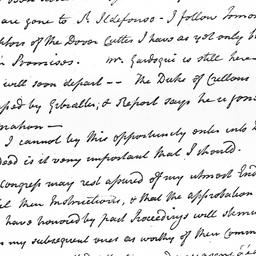 are gone to St Ildefonso - I follow tomor
of the Dover Cutter I have as yet only b
Promises. Mr. Gardoqui is still here
will soon depart — The Duke of Crillons
by Gibralter, & Report says he is join
mahon —
I cannot by this opportunity enter into D
is it very important that I should.
Congress may rest assured of my utmost End
their Instructions, & that the approbation
have honoured by past Proceedings will stimu
my subsequent ones as worthy of their Comm